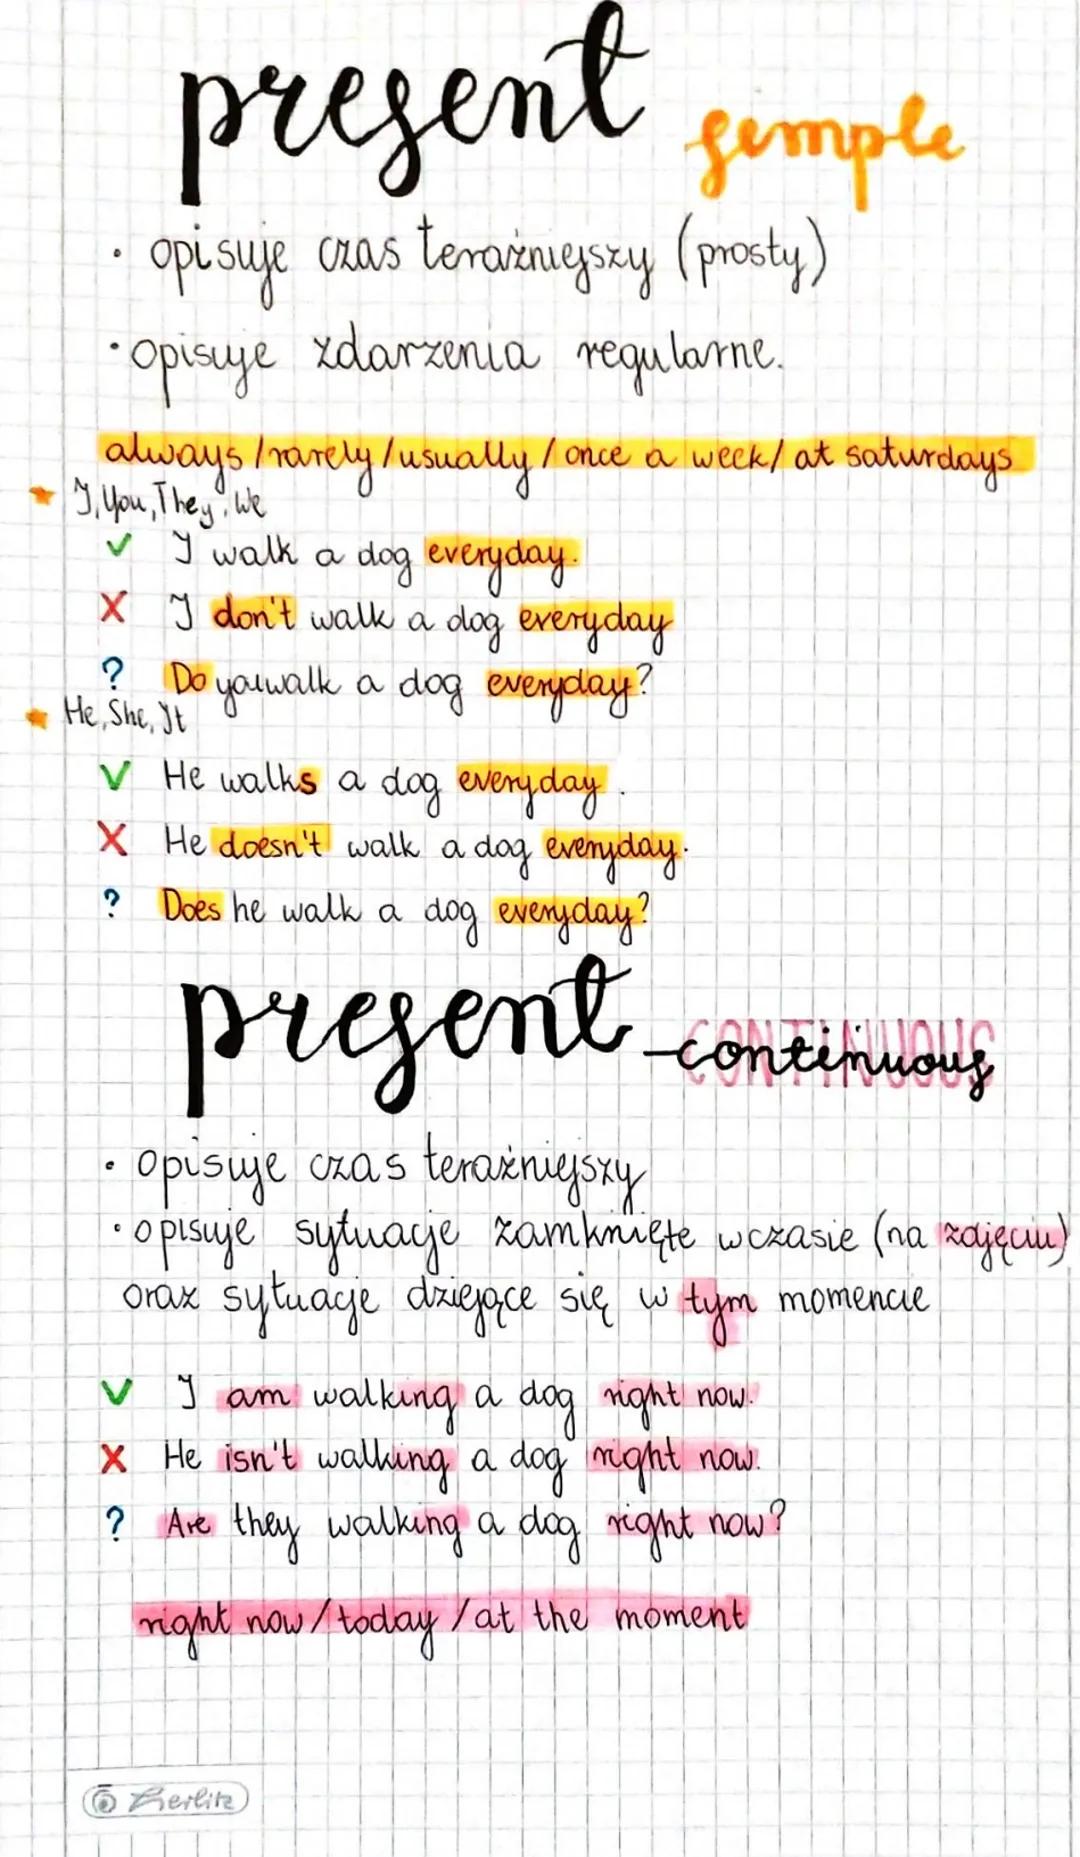 present simple
• opisuje czas teraźniejszy (prosty)
• opisuje zdarzenia regularne.
always/rarely/usually/once a week/at saturdays
I, You, They, We
✓ I walk a dog everyday.
X I don't walk a dog everyday
? Do you walk a dog everyday?
He, She, It
V He walks a dog everyday.
X He doesn't walk a dog everyday.
? Does he walk a dog everyday?
present CONTINUOUS continuous
• opisuje czas teraźniejszy
• opisuje sytuacje zamknięte w czasie (na zdjęciu)
oraz sytuacje dziejące się w tym momencie
V I am walking a dog right now.
X He isn't walking a dog right now.
? Are they walking a dog right now?
right now/today/at the moment
Herlitz